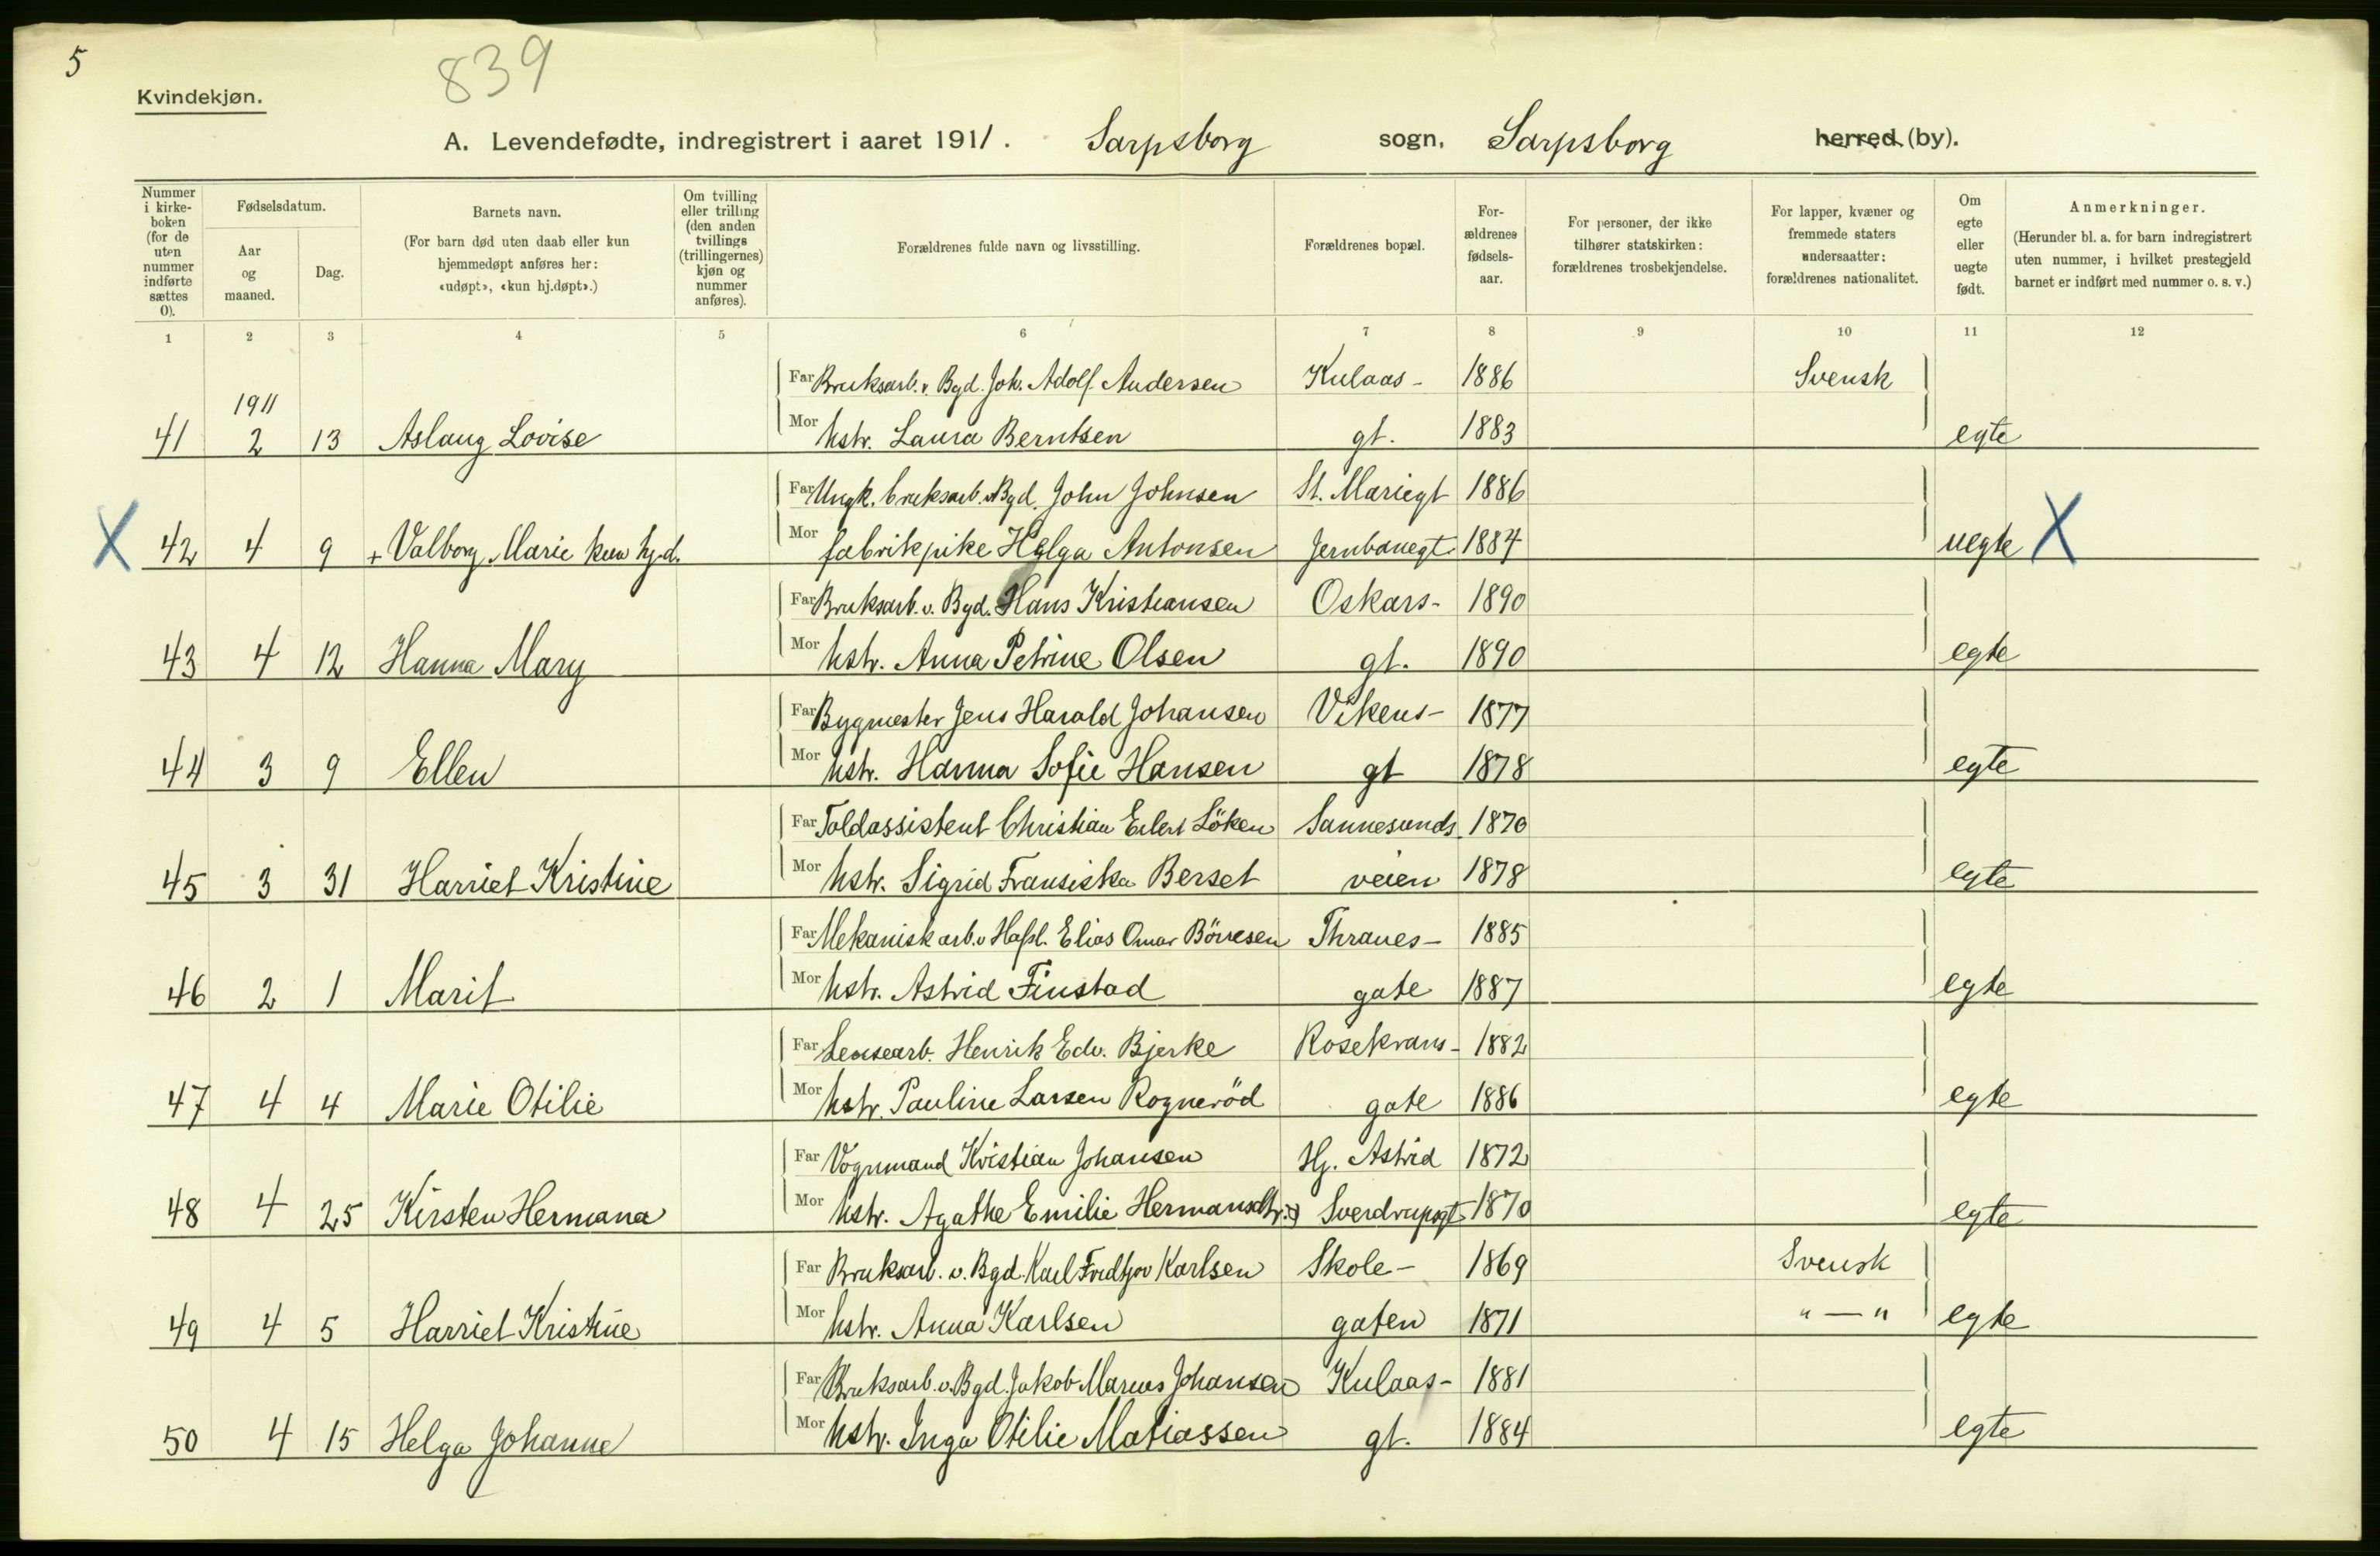 5
839
Kvindekjøn.
A. Levendefødte, indregistrert i aaret 1911. Sarpsborg sogn, Sarpsborg herred (by).
Nummer i kirkeboken (for de uten nummer indførte sættes 0).
Fødselsdatum.
Aar og maaned.
Dag.
Barnets navn.
(For barn død uten daab eller kun hjemmedøpt anføres her: «udøpt», «kun hj.døpt».)
Om tvilling eller trilling (den anden tvillings (trillingernes) kjøn og nummer anføres).
Forældrenes fulde navn og livsstilling.
Forældrenes bopæl.
Forældrenes fødselsaar.
For personer, der ikke tilhører statskirken: forældrenes trosbekjendelse.
For lapper, kvæner og fremmede staters undersaatter: forældrenes nationalitet.
Om egte eller uegte født.
Anmerkninger.
(Herunder bl. a. for barn indregistrert uten nummer, i hvilket prestegjeld barnet er indført med nummer o. s. v.)
1 2 3 4 5 6 7 8 9 10 11 12
Far Bruksarb. v. Bgd. Joh. Adolf Andersen Kulaas- 1886 Svensk
1911
41 2 13 Aslaug Lovise Mor hstr. Laura Berntsen gt. 1883 egte
Far Ungk. bruksarb. v. Bgd. John Johnsen St. Mariegt 1886
X 42 4 9 + Valborg Marie kun hj.d. Mor fabrikpike Helga Antonsen Jernbanegt. 1884 uegte X
Far Bruksarb. v. Bgd. Hans Kristiansen Oskars- 1890
43 4 12 Hanna Mary Mor hstr. Anna Petrine Olsen gt. 1890 egte
Far Bygmester Jens Harald Johansen Vikens- 1877
44 3 9 Ellen Mor hstr. Hanna Sofie Hansen gt 1878 egte
Far Toldassistent Christian Eilert Löken Sannesunds 1870
45 3 31 Harriet Kristine Mor hstr. Sigrid Fransiska Berset veien 1878 egte
Far Mekanisk arb. v Hafsl. Elias Omar Börresen Thranes- 1885
46 2 1 Marit Mor hstr. Astrid Finstad gate 1887 egte
Far Lensearb. Henrik Edv. Bjerke Rosekrans- 1882
47 4 4 Marie Otilie Mor hstr. Pauline Larsen Rogneröd gate 1886 egte
Far Vognmand Kristian Johansen Hj. Astrid 1872
48 4 25 Kirsten Hermana Mor hstr. Agathe Emilie Hermansdtr. Sverdrupsgt. 1870 egte
Far Bruksarb. v. Bgd. Karl Fredtjov Karlsen Skole- 1869 Svensk
49 4 5 Harriet Kristine Mor hstr. Anna Karlsen gaten 1871 " — " egte
Far Bruksarb. v. Bgd. Jakob Marius Johansen Kulaas- 1881
50 4 15 Helga Johanne Mor hstr. Inga Otilie Matiassen gt. 1884 egte